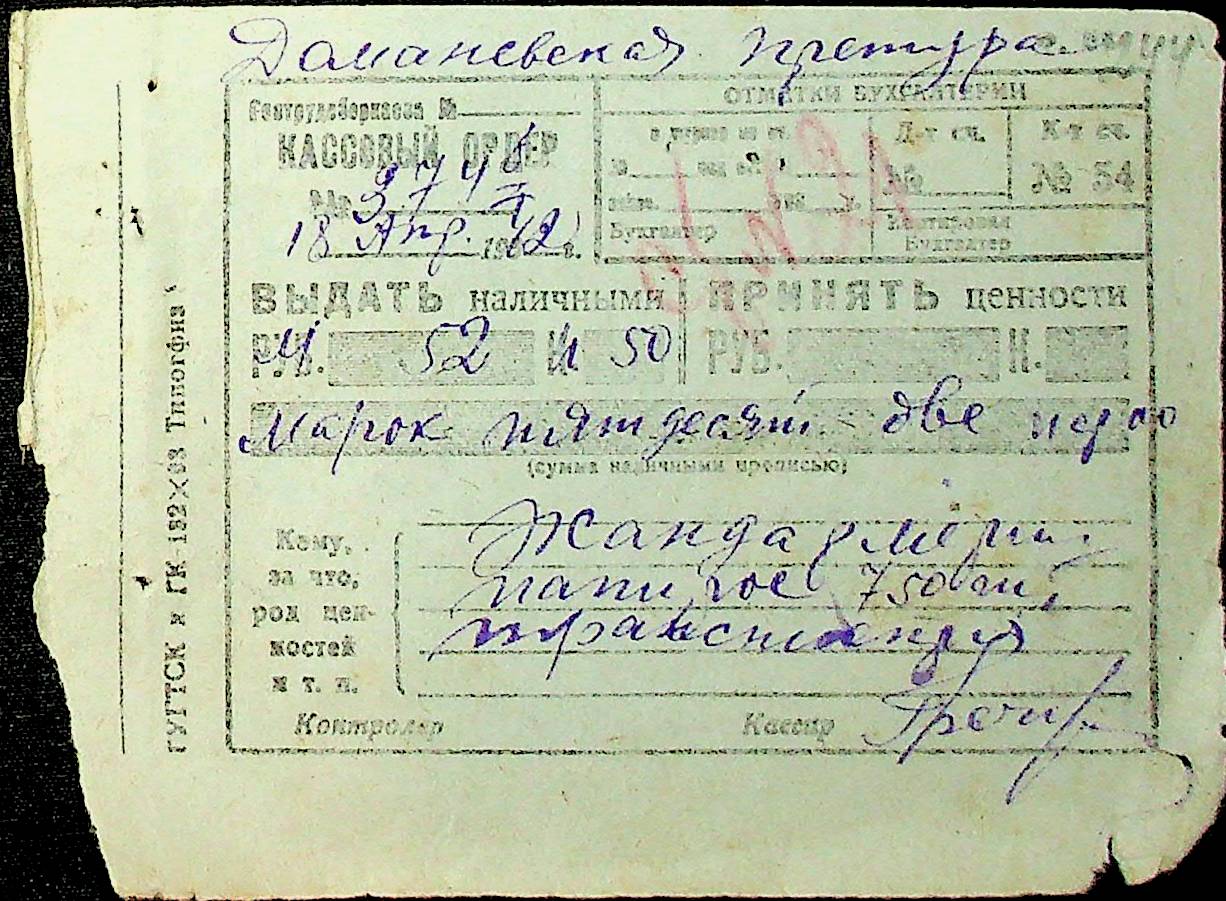 Доманевская претура
Гострудсберкасса №
КАССОВЫЙ ОРДЕР
№ 3748
18 Апр. 1942 г.
ОТМЕТКИ БУХГАЛТЕРИИ
Д-т сч.
№
К-т сч.
№ 54
Бухгалтер
Контировал
Бухгалтер
ВЫДАТЬ наличными
РУБ. М 52 И 50
ПРИНЯТЬ ценности
РУБ. К.
Марок пятьдесят две
(сумма наличными прописью)
Кому,
за что,
род цен-
ностей
и т. п.
Жандармерии
папирос 750 шт.
Контролер
Кассир
ГУГТСК и ГК-182×63 Типогфиз